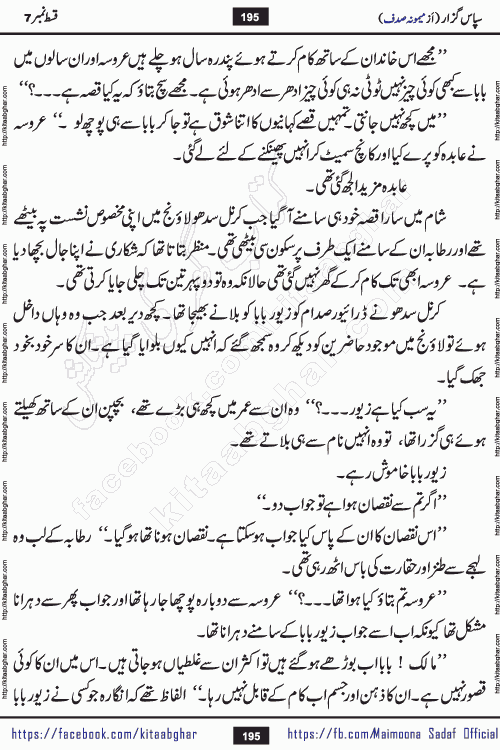 سپاس گزار (از میمونہ صدف)
195
قسط نمبر 7
’’مجھے اس خاندان کے ساتھ کام کرتے ہوئے پندرہ سال ہو چلے ہیں عروسہ اور ان سالوں میں
بابا سے کبھی کوئی چیز نہیں ٹوٹی نہ ہی کوئی چیز ادھر سے ادھر ہوئی ہے۔ مجھے سچ بتاؤ کہ یہ کیا قصہ ہے۔۔۔؟‘‘
’’میں کچھ نہیں جانتی۔ تمہیں قصے کہانیوں کا اتنا شوق ہے تو جا کر بابا سے ہی پوچھ لو۔‘‘ عروسہ
نے عابدہ کو پرے کیا اور کانچ سمیٹ کر انہیں پھینکنے کے لئے لے گئی۔
عابدہ مزید الجھ گئی تھی۔
شام میں سارا قصہ خود ہی سامنے آ گیا جب کرنل سدھو لاؤنج میں اپنی مخصوص نشست پہ بیٹھے
تھے اور رطابہ ان کے سامنے ایک طرف پر سکون سی بیٹھی تھی۔ منظر بتاتا تھا کہ شکاری نے اپنا جال بچھا دیا
ہے۔ عروسہ ابھی تک کام کر کے گھر نہیں گئی تھی حالانکہ وہ تو دوپہر تین تک چلی جایا کرتی تھی۔
کرنل سدھو نے ڈرائیور صدام کو زیور بابا کو بلانے بھیجا تھا۔ کچھ دیر بعد جب وہ وہاں داخل
ہوئے تو لاؤنج میں موجود حاضرین کو دیکھ کر وہ سمجھ گئے کہ انہیں کیوں بلوایا گیا ہے۔ ان کا سر خود بخود
جھک گیا۔
’’یہ سب کیا ہے زیور۔۔۔؟‘‘ وہ ان سے عمر میں کچھ ہی بڑے تھے، بچپن ان کے ساتھ کھیلتے
ہوئے ہی گزرا تھا، تو وہ انہیں نام سے ہی بلاتے تھے۔
زیور بابا خاموش رہے۔
’’اگر تم سے نقصان ہوا ہے تو جواب دو۔‘‘
’’اس نقصان کا ان کے پاس کیا جواب ہو سکتا ہے۔ نقصان ہونا تھا ہو گیا۔‘‘ رطابہ کے لب و
لہجے سے طنز اور حقارت کی باس اٹھ رہی تھی۔
’’عروسہ تم بتاؤ کیا ہوا تھا۔۔۔؟‘‘ عروسہ سے دوبارہ پوچھا جا رہا تھا اور جواب پھر سے دہرانا
مشکل تھا کیونکہ اب اسے جواب زیور بابا کے سامنے دہرانا تھا۔
’’مالک! بابا اب بوڑھے ہو گئے ہیں تو اکثر ان سے غلطیاں ہو جاتی ہیں۔ اس میں ان کا کوئی
قصور نہیں ہے۔ ان کا ذہن اور جسم اب کام کے قابل نہیں رہا۔‘‘ الفاظ تھے کہ انگارہ جو کسی نے زیور بابا
https://facebook.com/kitaabghar
195
https://fb.com/Maimoona Sadaf Official
http://kitaabghar.com